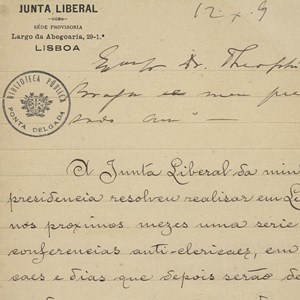 JUNTA LIBERAL
SÉDE PROVISORIA
Largo da Abegoaria, 29-1.º
LISBOA
12-X-9
BIBLIOTECA PÚBLICA
PONTA DELGADA
Dr. Theophi
Braga e meu
A Junta Liberal da min
presidencia resolveu realisar em
nos proximos mezes uma serie
conferencias anti-clericaes, em
caes e dias que depois serão